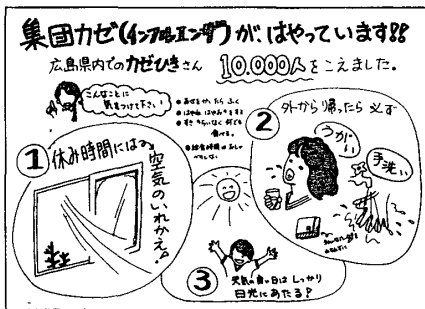 集団カゼ(インフルエンザ)が、はやっています!!
広島県内でのカゼひきさん 10.000人をこえました。
こんなことに
気をつけて下さい
●あせをかいたら ふく
●はやね はやおきをする
●すききらいなく 何でも
食べる。
①休み時間には
空気のいれかえ。
②外から帰ったら 必ず
うがい
手洗い
③天気の良い日は しっかり
日光にあたる!